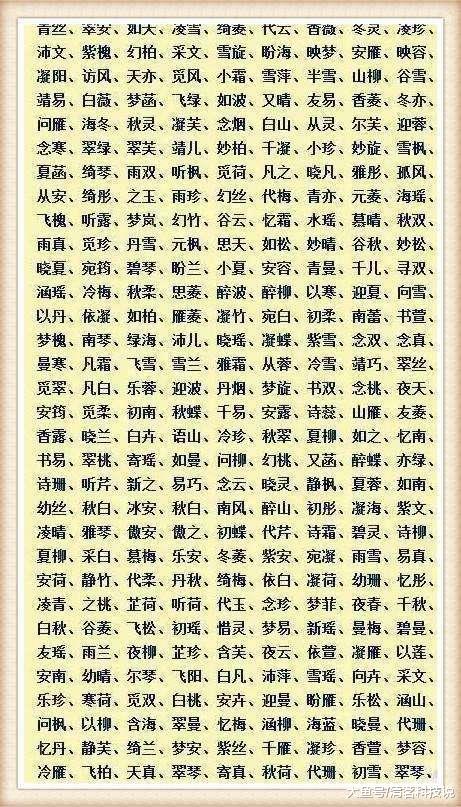 青丝、翠安、如天、凌雪、绮菱、代云、香薇、冬灵、凌珍、
沛文、紫槐、幻柏、采文、雪旋、盼海、映梦、安雁、映容、
凝阳、访风、天亦、觅风、小霜、雪萍、半雪、山柳、谷雪、
靖易、白薇、梦菡、飞绿、如波、又晴、友易、香菱、冬亦、
问雁、海冬、秋灵、凝芙、念烟、白山、从灵、尔芙、迎蓉、
念寒、翠绿、翠芙、靖儿、妙柏、千凝、小珍、妙旋、雪枫、
夏菡、绮琴、雨双、听枫、觅荷、凡之、晓凡、雅彤、孤风、
从安、绮彤、之玉、雨珍、幻丝、代梅、青亦、元菱、海瑶、
飞槐、听露、梦岚、幻竹、谷云、忆霜、水瑶、慕晴、秋双、
雨真、觅珍、丹雪、元枫、思天、如松、妙晴、谷秋、妙松、
晓夏、宛筠、碧琴、盼兰、小夏、安容、青曼、千儿、寻双、
涵瑶、冷梅、秋柔、思菱、醉波、醉柳、以寒、迎夏、向雪、
以丹、依凝、如柏、雁菱、凝竹、宛白、初柔、南蕾、书萱、
梦槐、南琴、绿海、沛儿、晓瑶、凝蝶、紫雪、念双、念真、
曼寒、凡霜、飞雪、雪兰、雅霜、从蓉、冷雪、靖巧、翠丝、
觅翠、凡白、乐蓉、迎波、丹烟、梦旋、书双、念桃、夜天、
安筠、觅柔、初南、秋蝶、千易、安露、诗蕊、山雁、友菱、
香露、晓兰、白卉、语山、冷珍、秋翠、夏柳、如之、忆南、
书易、翠桃、寄瑶、如曼、问柳、幻桃、又菡、醉蝶、亦绿、
诗珊、听芹、新之、易巧、念云、晓灵、静枫、夏蓉、如南、
幼丝、秋白、冰安、秋白、南风、醉山、初彤、凝海、紫文、
凌晴、雅琴、傲安、傲之、初蝶、代芹、诗霜、碧灵、诗柳、
夏柳、采白、慕梅、乐安、冬菱、紫安、宛凝、雨雪、易真、
安荷、静竹、代柔、丹秋、绮梅、依白、凝荷、幼珊、忆彤、
凌青、之桃、芷荷、听荷、代玉、念珍、梦菲、夜春、千秋、
白秋、谷菱、飞松、初瑶、惜灵、梦易、新瑶、曼梅、碧曼、
友瑶、雨兰、夜柳、芷珍、含芙、夜云、依萱、凝雁、以莲、
安南、幼晴、尔琴、飞阳、白凡、沛萍、雪瑶、向卉、采文、
乐珍、寒荷、觅双、白桃、安卉、迎曼、盼雁、乐松、涵山、
问枫、以柳、含海、翠曼、忆梅、涵柳、海蓝、晓曼、代珊、
忆丹、静芙、绮兰、梦安、紫丝、千雁、凝珍、香萱、梦容、
冷雁、飞柏、天真、翠琴、寄真、秋荷、代珊、初雪、翠琴、